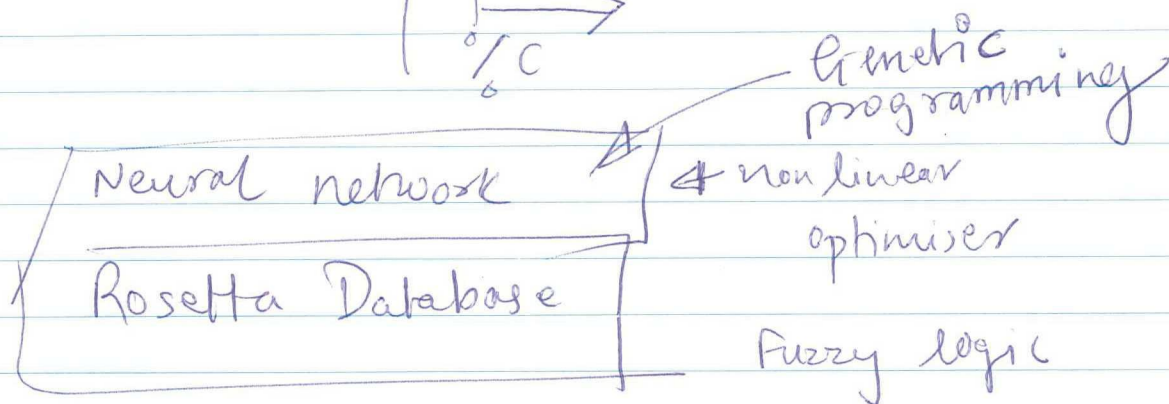 %C
Genetic
programming
Neural network
non linear
optimiser
Rosetta Database
Fuzzy logic